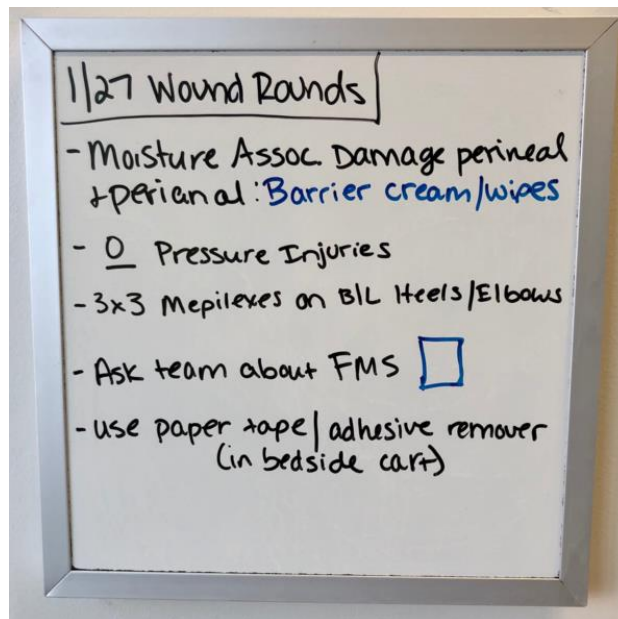 1/27 Wound Rounds
- Moisture Assoc. Damage perineal
+perianal: Barrier cream/wipes
- 0 Pressure Injuries
- 3x3 Mepilexes on B/L Heels/Elbows
- Ask team about FMS
- use paper tape/adhesive remover
(in bedside cart)